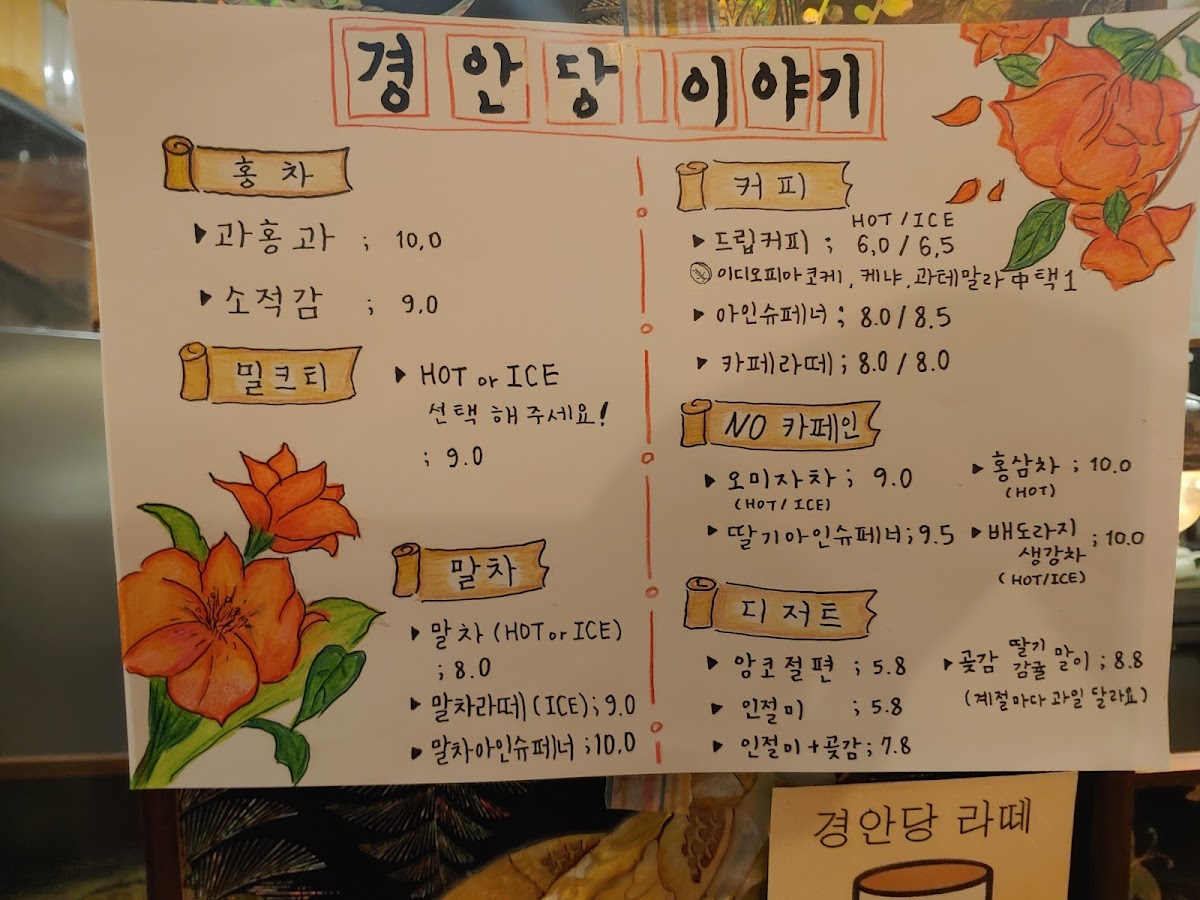 경안당 이야기
홍차
▶과홍과 ; 10,0
▶소적감 ; 9,0
밀크티
▶ HOT or ICE
선택 해주세요!
; 9.0
말차
▶말차 (HOT or ICE)
; 8.0
▶말차라떼 (ICE) ; 9.0
▶말차아인슈페너 ; 10.0
커피
HOT / ICE
▶드립커피 ; 6,0 / 6,5
이디오피아코케, 케냐, 과테말라 中 택1
▶아인슈페너 ; 8.0 / 8.5
▶카페라떼 ; 8.0 / 8.0
NO 카페인
▶오미자차 ; 9.0
(HOT / ICE)
▶딸기아인슈페너 ; 9.5
▶홍삼차 ; 10.0
(HOT)
▶배도라지
생강차 ; 10.0
(HOT/ICE)
디저트
▶앙코절편 ; 5.8
▶인절미 ; 5.8
▶인절미+곶감 ; 7.8
▶곶감 딸기 감귤 말이 ; 8.8
(계절마다 과일 달라요)
경안당 라떼